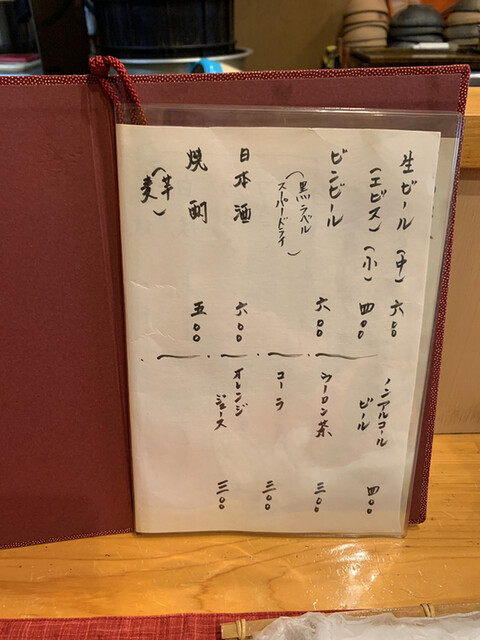 生ビール（中）六〇〇
（エビス）（小）四〇〇
ビンビール 六〇〇
（黒ラベル
スーパードライ）
日本酒 六〇〇
焼酎 五〇〇
（芋
麦）
ノンアルコール
ビール 四〇〇
ウーロン茶 三〇〇
コーラ 三〇〇
オレンジ
ジュース 三〇〇